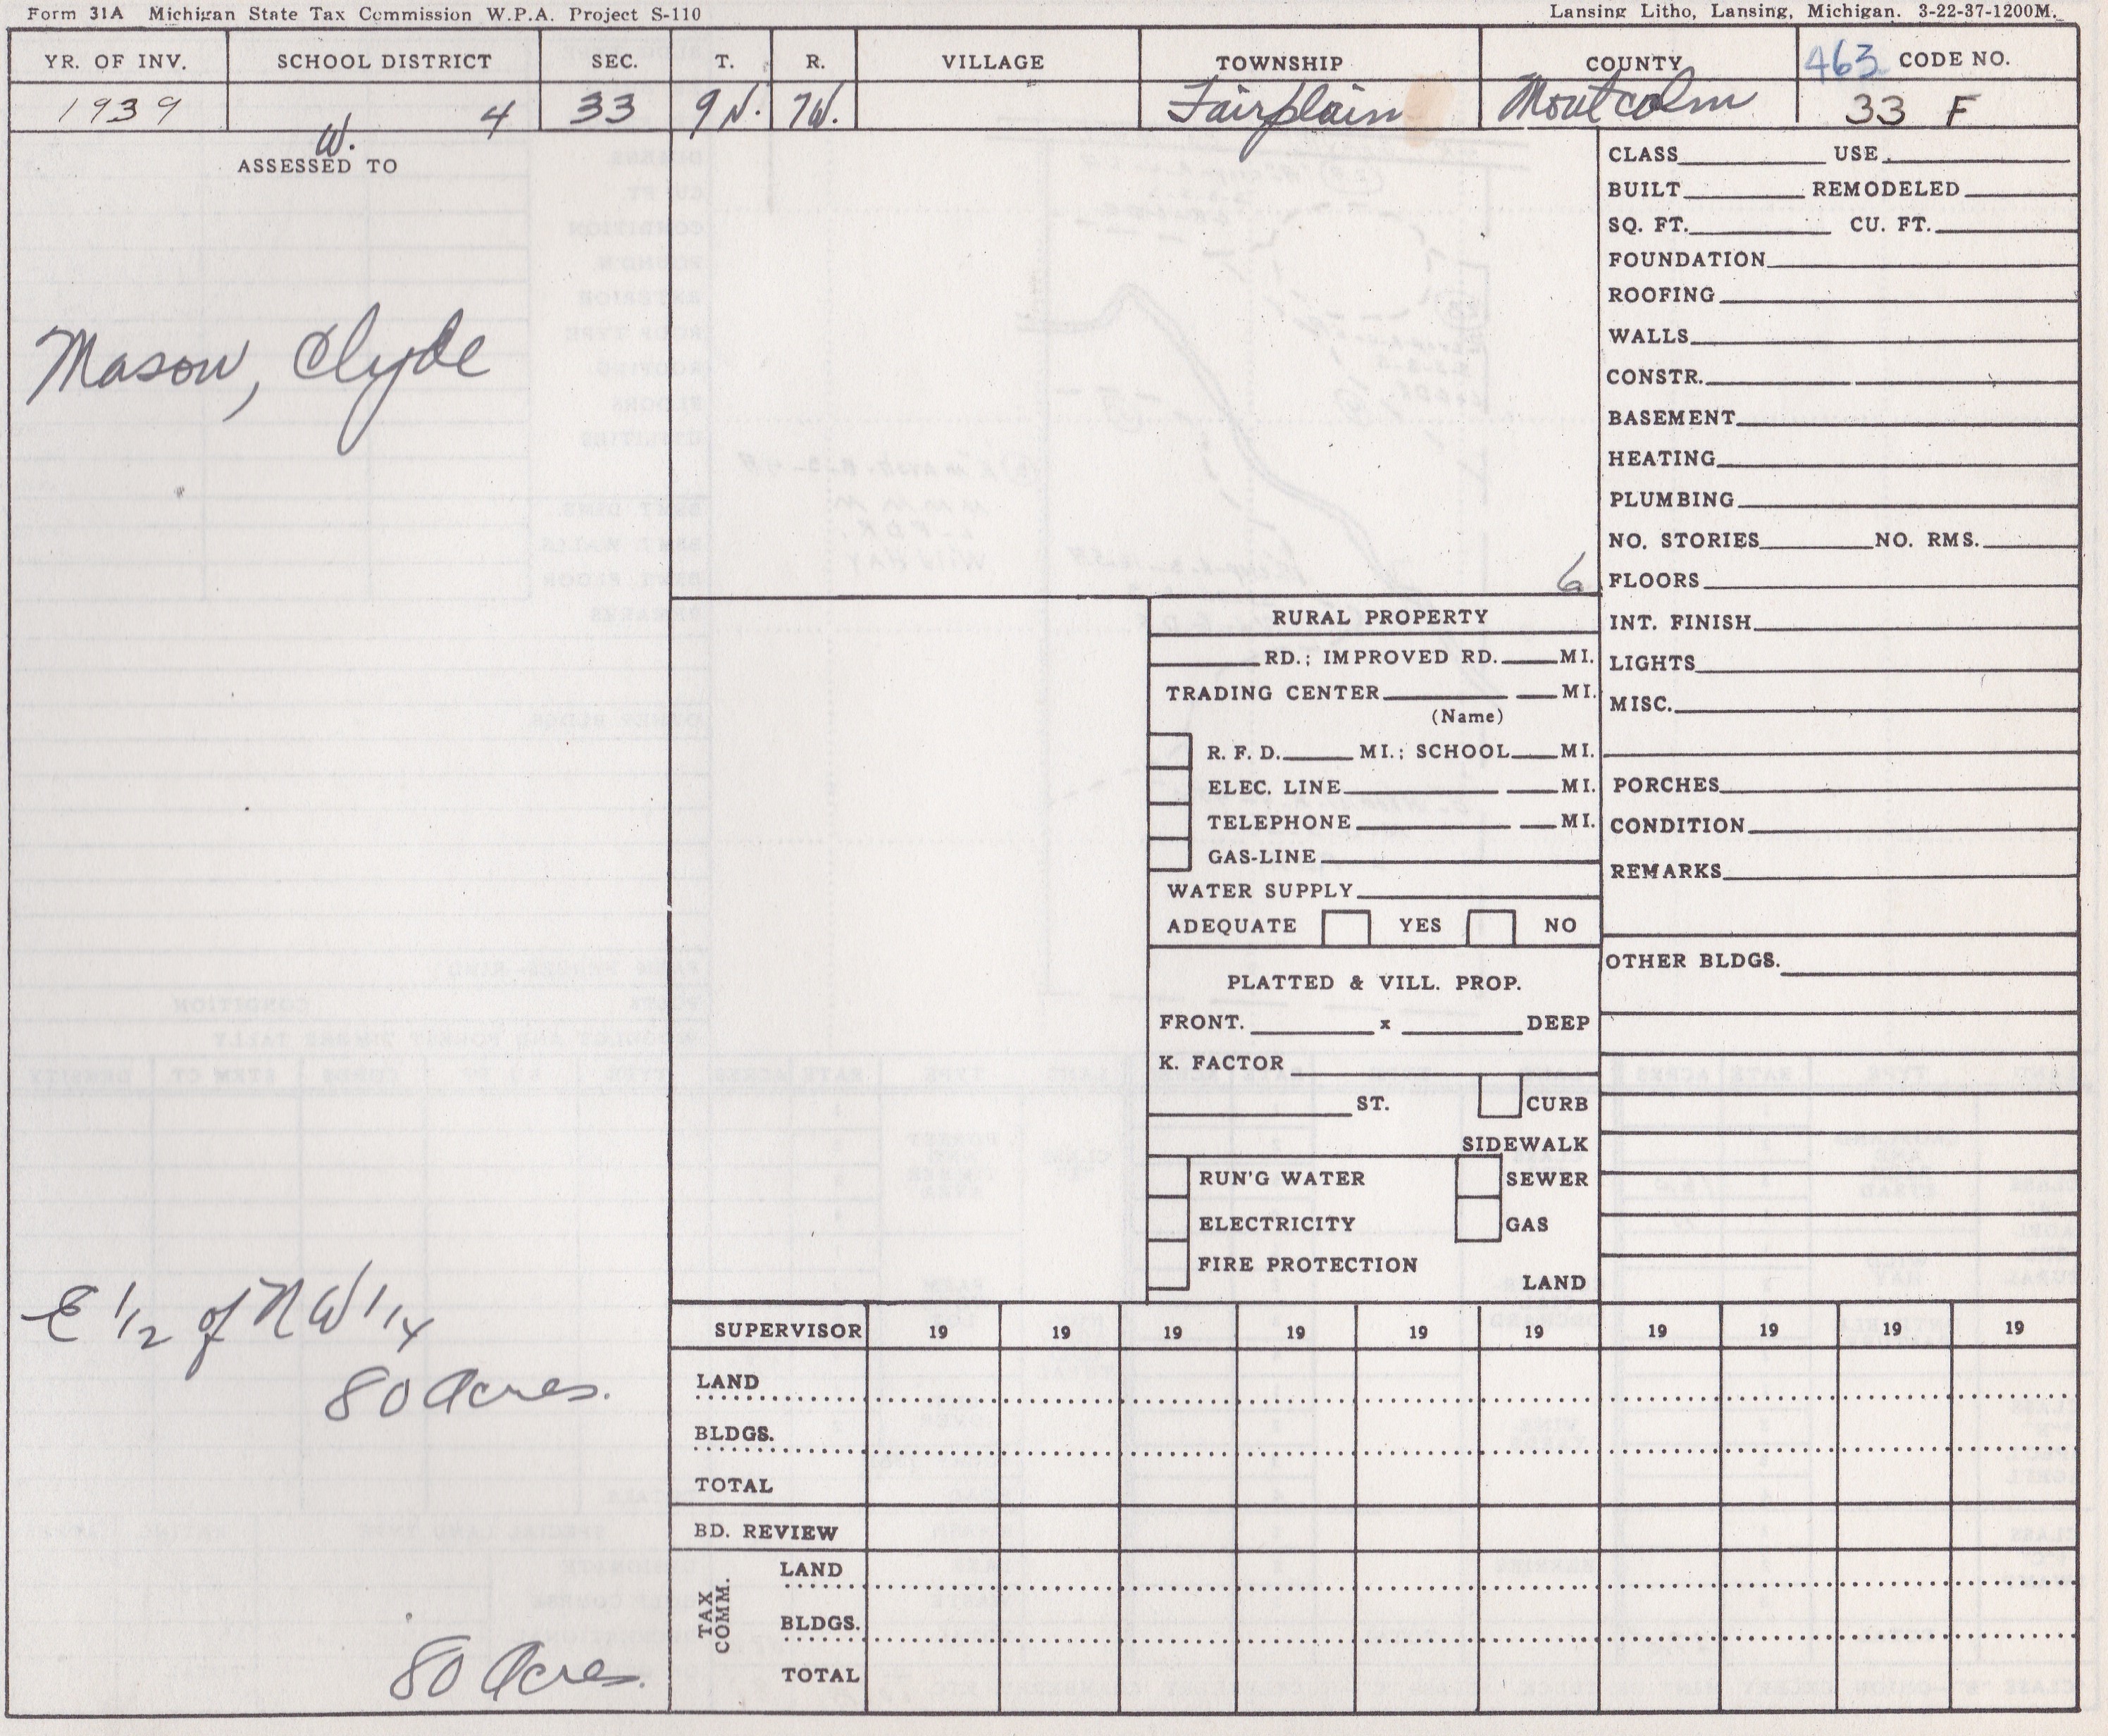 Form 31A Michigan State Tax Commission W.P.A. Project S-110
Lansing Litho, Lansing, Michigan. 3-22-37-1200M.
YR. OF INV. SCHOOL DISTRICT SEC. T. R. VILLAGE TOWNSHIP COUNTY 463 CODE NO.
1939 4 33 9N. 7W. Fairplain Montcalm 33 F
W.
ASSESSED TO
Mason, Clyde
E 1/2 of NW 1/4
80 Acres.
80 Acres.
6
CLASS USE
BUILT REMODELED
SQ. FT. CU. FT.
FOUNDATION
ROOFING
WALLS
CONSTR.
BASEMENT
HEATING
PLUMBING
NO. STORIES NO. RMS.
FLOORS
INT. FINISH
LIGHTS
MISC.
PORCHES
CONDITION
REMARKS
OTHER BLDGS.
RURAL PROPERTY
RD.; IMPROVED RD. MI.
TRADING CENTER MI.
(Name)
R. F. D. MI.; SCHOOL MI.
ELEC. LINE MI.
TELEPHONE MI.
GAS-LINE
WATER SUPPLY
ADEQUATE YES NO
PLATTED & VILL. PROP.
FRONT. x DEEP
K. FACTOR
ST. CURB
SIDEWALK
RUN'G WATER SEWER
ELECTRICITY GAS
FIRE PROTECTION
LAND
SUPERVISOR 19 19 19 19 19 19 19 19 19 19
LAND
BLDGS.
TOTAL
BD. REVIEW
TAX COMM.
LAND
BLDGS.
TOTAL